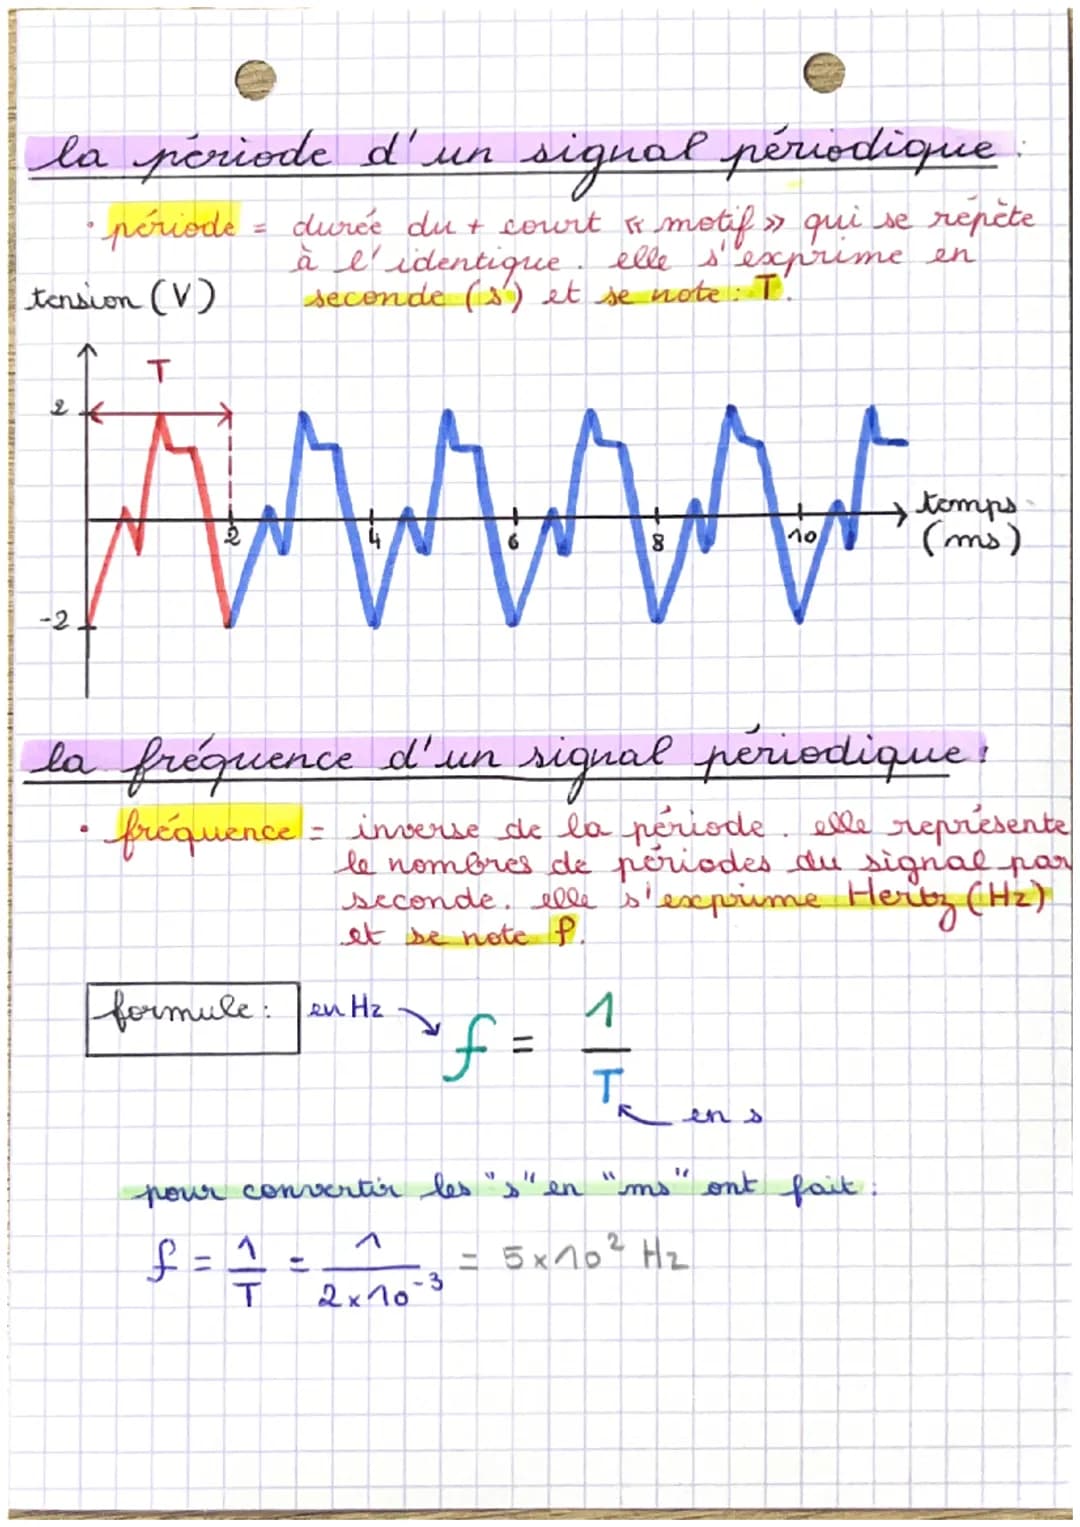 la période d'un signal périodique :
• période = durée du + court « motif » qui se répète
à l'identique. elle s'exprime en
seconde (s) et se note : T.
tension (V)
T
2
2
4
6
8
10
temps
(ms)
-2
la fréquence d'un signal périodique :
• fréquence = inverse de la période. elle représente
le nombres de périodes du signal par
seconde. elle s'exprime Hertz (Hz)
et se note f.
formule : en Hz f = 1/T
en s
pour convertir les "s" en "ms" ont fait :
f = 1/T = 1/2×10⁻³ = 5×10² Hz